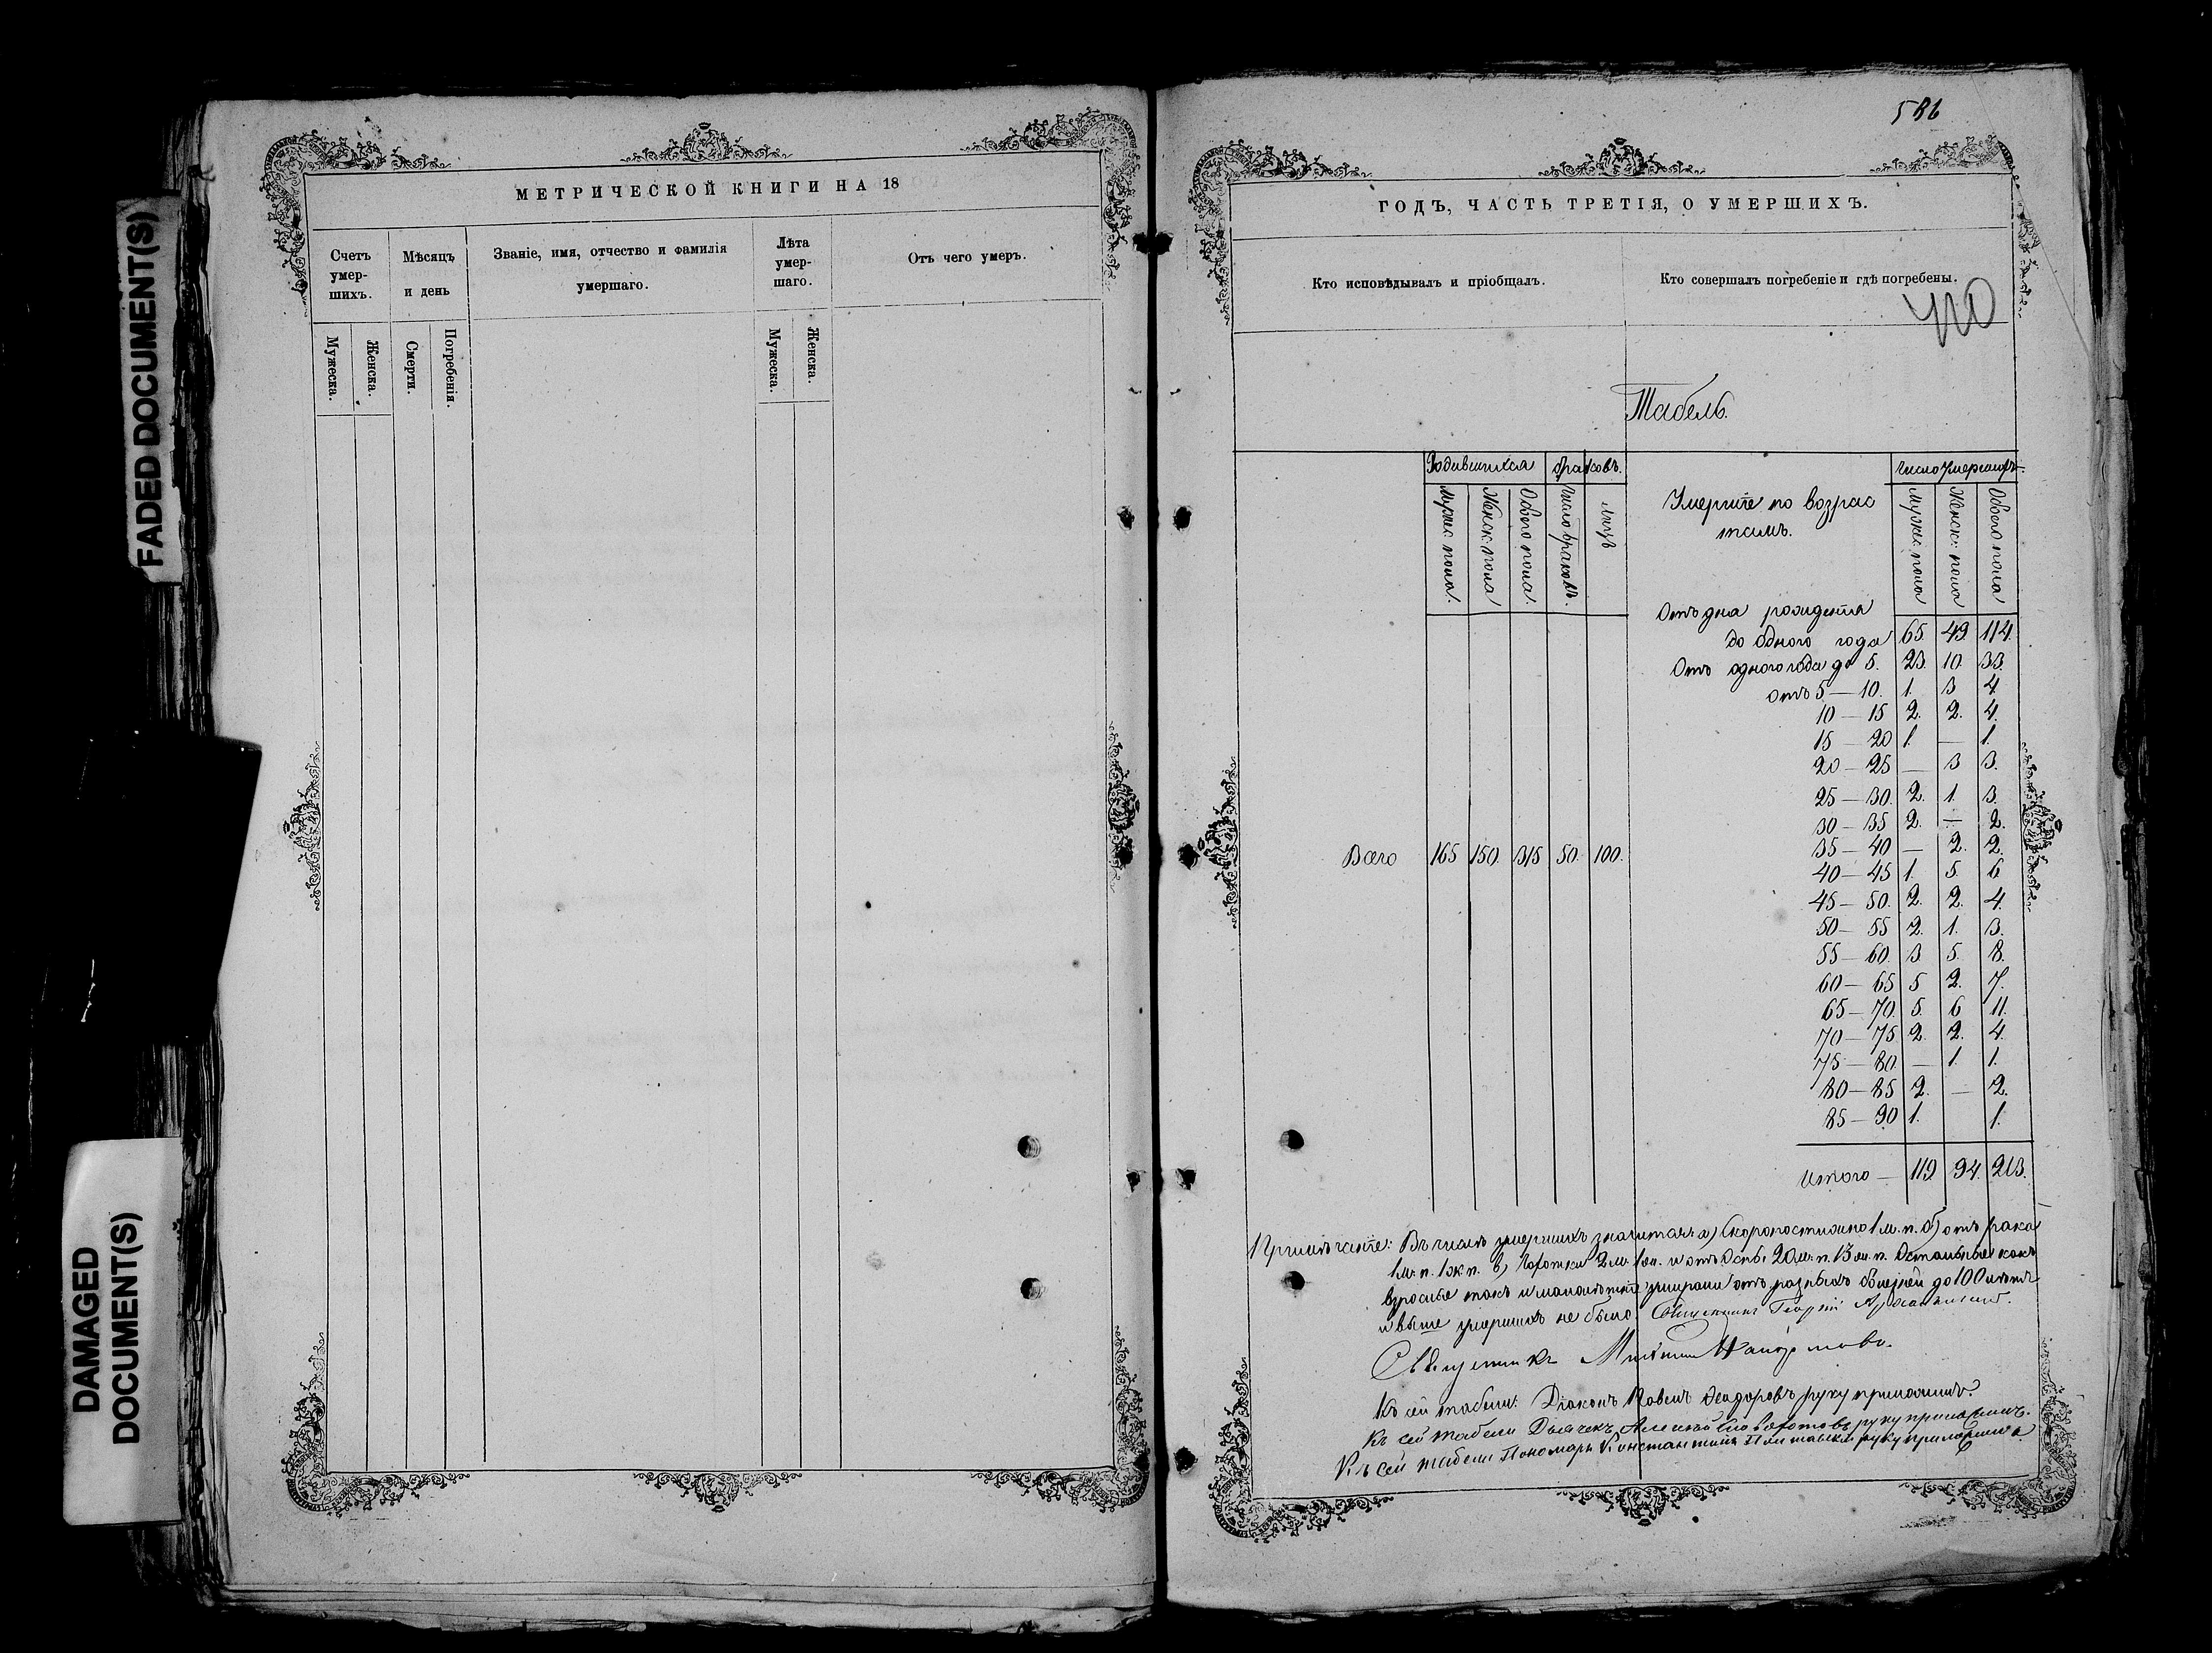 FADED DOCUMENT(S)
DAMAGED
DOCUMENT(S)
МЕТРИЧЕСКОЙ КНИГИ НА 18
Счетъ умер-шихъ.
Мѣсяцъ и день
Званіе, имя, отчество и фамилія умершаго.
Лѣта умер-шаго.
Отъ чего умеръ.
Мужеска.
Женска.
Смерти.
Погребенія.
Мужеска.
Женска.
586
ГОДЪ, ЧАСТЬ ТРЕТІЯ, О УМЕРШИХЪ.
Кто исповѣдывалъ и пріобщалъ.
Кто совершалъ погребеніе и гдѣ погребены.
Табель.
Родившихся
браковъ.
Число умершихъ
Мужес. пола.
Женск. пола
Обоего пола.
Число браковъ.
лицъ
Умершіе по возрас
тамъ.
Мужес. пола
Женск. пола
Обоего пола
Отъ дня рожденія
до одного года 65. 49. 114.
Отъ одного года до 5. 23. 10. 33.
отъ 5 — 10. 1. 3 4
10 — 15 2. 2. 4.
15 — 20 1. — 1.
20 — 25 — 3 3.
25 — 30. 2. 1. 3.
30 — 35 2. — 2.
35 — 40 — 2. 2.
Всего 165 150. 315 50. 100.
40 — 45 1. 5. 6
45 — 50. 2. 2. 4.
50 — 55 2. 1. 3.
55 — 60. 3. 5. 8.
60 — 65 5 2. 7.
65 — 70. 5. 6 11.
70 — 75 2. 2. 4.
75 — 80. — 1. 1.
80 — 85 2. — 2.
85 — 90 1. 1.
Итого — 119 94. 213.
Примѣчаніе: Въ числѣ умершихъ значится: а) Скоропостижно 1 м. п. б) отъ рака
1 м. п. 1 ж п. в) Чахотки 2 м. 1 ж. и отъ Оспы 20 м. п. 13 ж. п. Остальные какъ
взрослые такъ и малолѣтніе умирали отъ разныхъ болѣзней до 100 лѣтъ
и выше умершихъ не было. Священникъ Георгій
Священникъ
Къ сей табели Діаконъ Павелъ Ѳеодоровъ руку приложилъ.
Къ сей табели Дьячекъ Алексѣй руку приложилъ.
Къ сей табели Пономарь Константинъ руку приложилъ